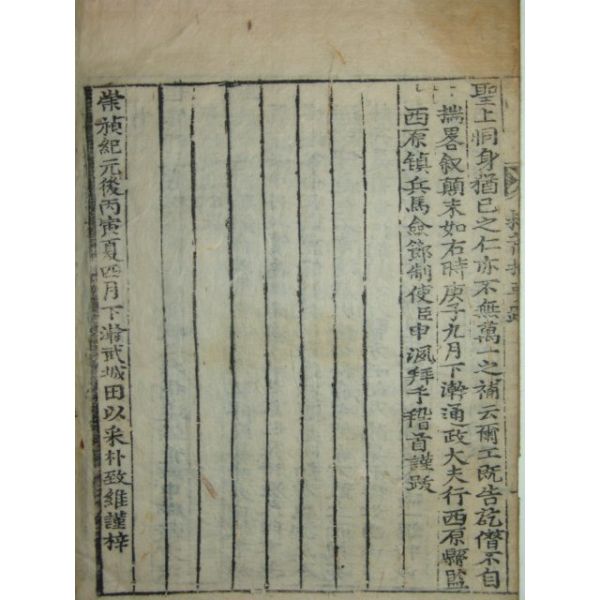 聖上恫身猶己之仁亦不無萬一之補云爾工既告訖僭不自
揣畧敘顛末如右時庚子九月下澣通政大夫行西原縣監
西原鎮兵馬僉節制使臣申渢拜手稽首謹跋
崇禎紀元後丙寅夏四月下澣武城田以采朴致維謹梓